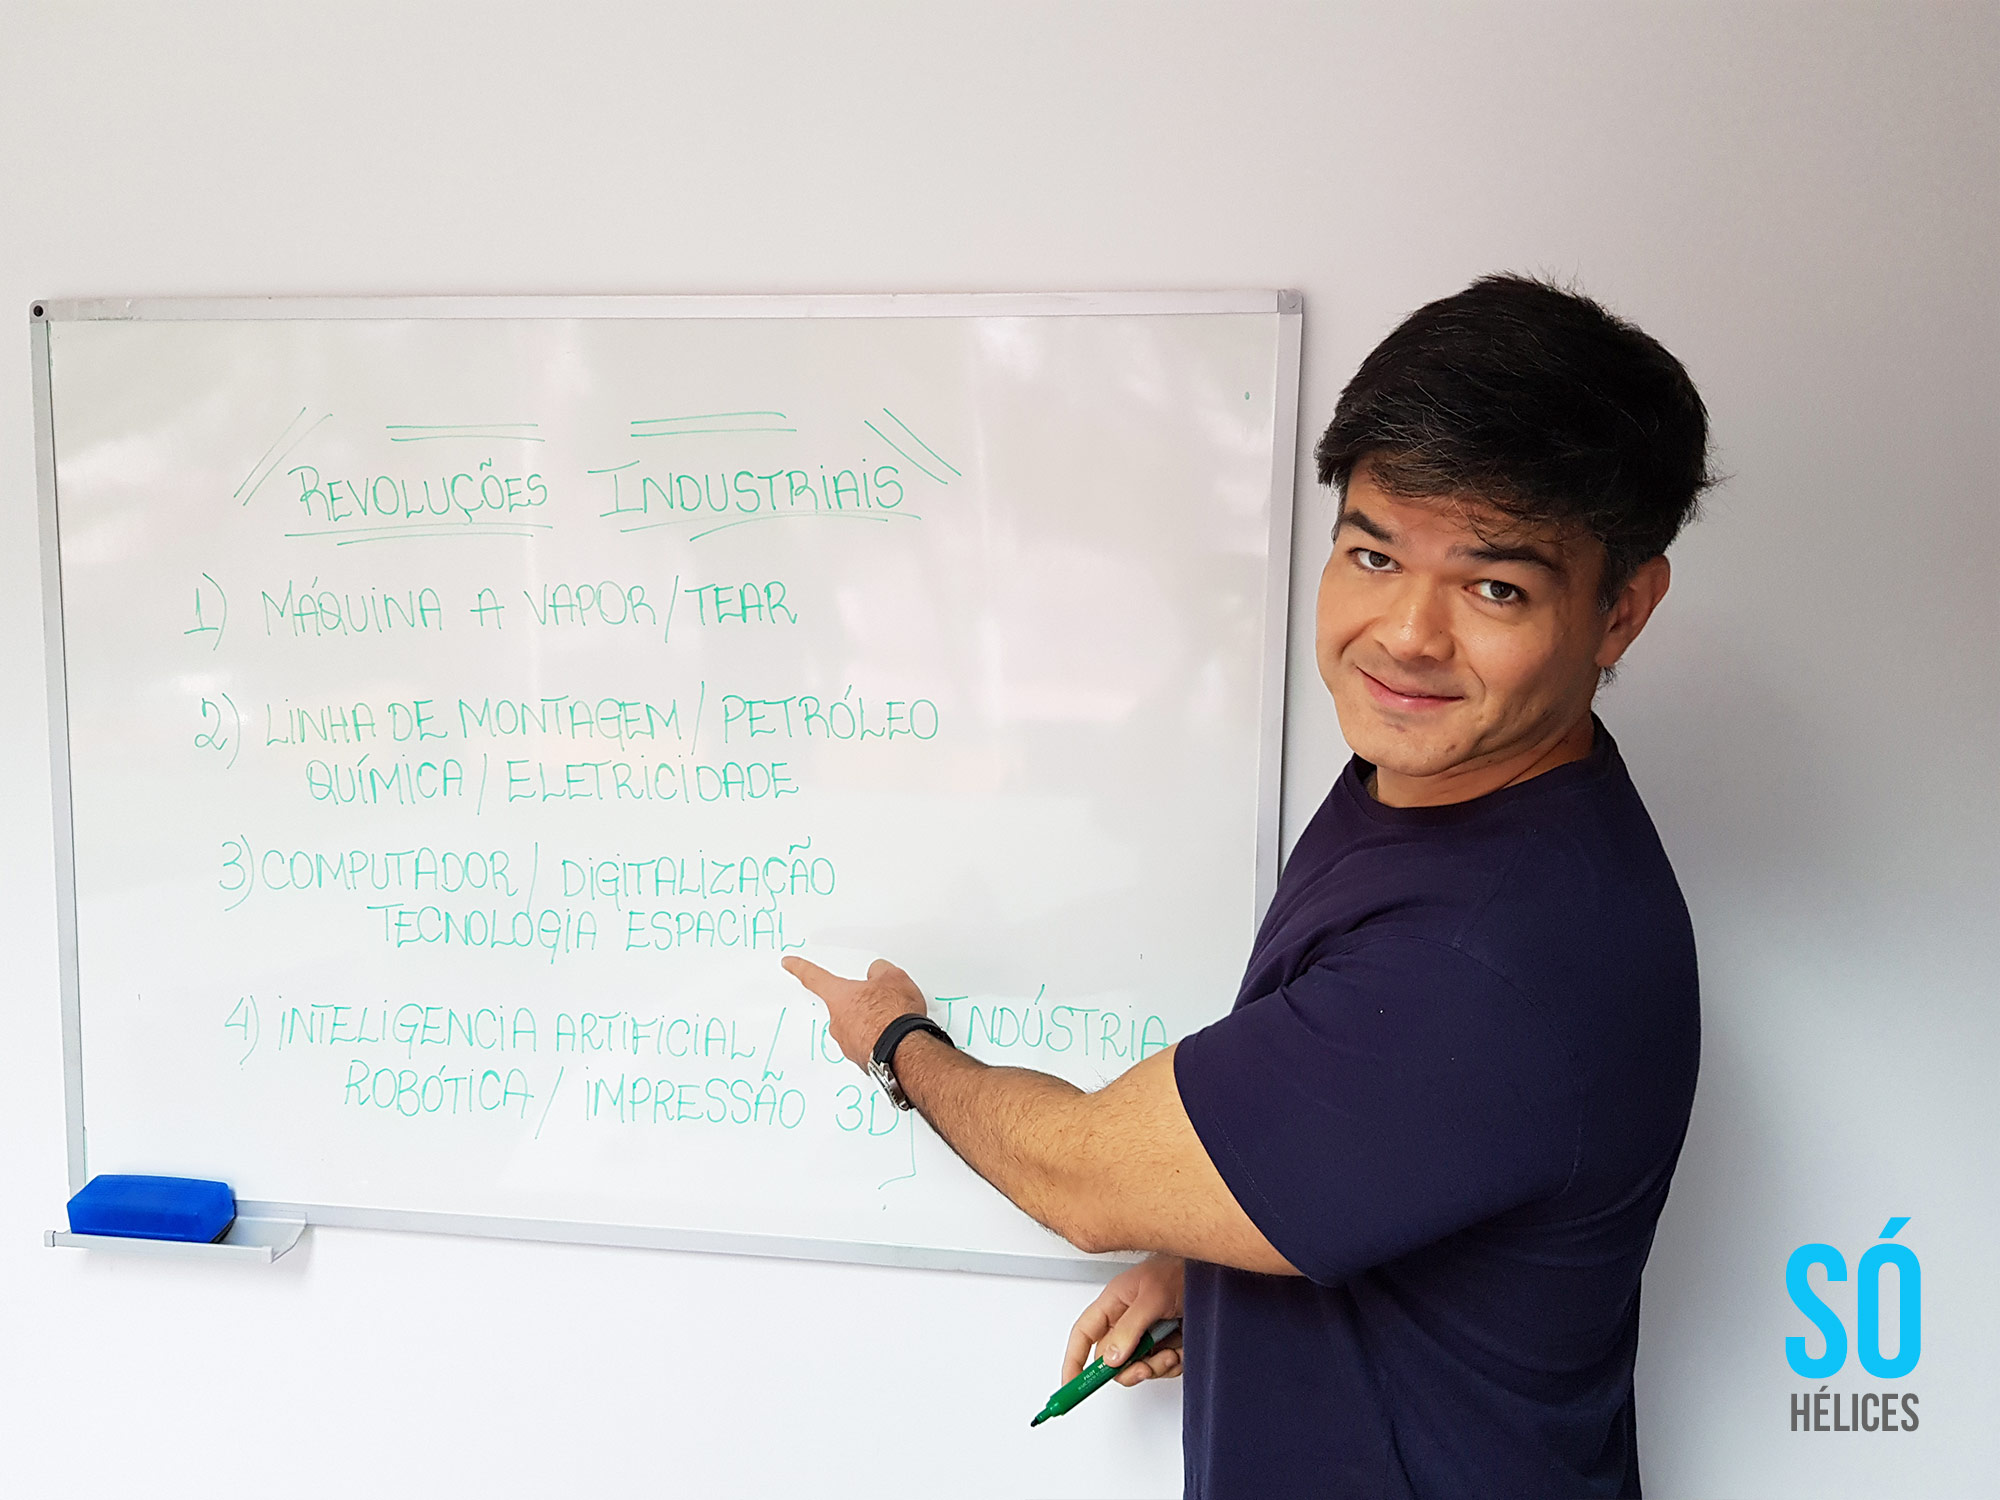 REVOLUÇÕES INDUSTRIAIS
1) MÁQUINA A VAPOR/TEAR
2) LINHA DE MONTAGEM/PETRÓLEO
QUÍMICA/ELETRICIDADE
3) COMPUTADOR/DIGITALIZAÇÃO
TECNOLOGIA ESPACIAL
4) INTELIGENCIA ARTIFICIAL/ INDÚSTRIA
ROBÓTICA/IMPRESSÃO 3D
SÓ
HÉLICES